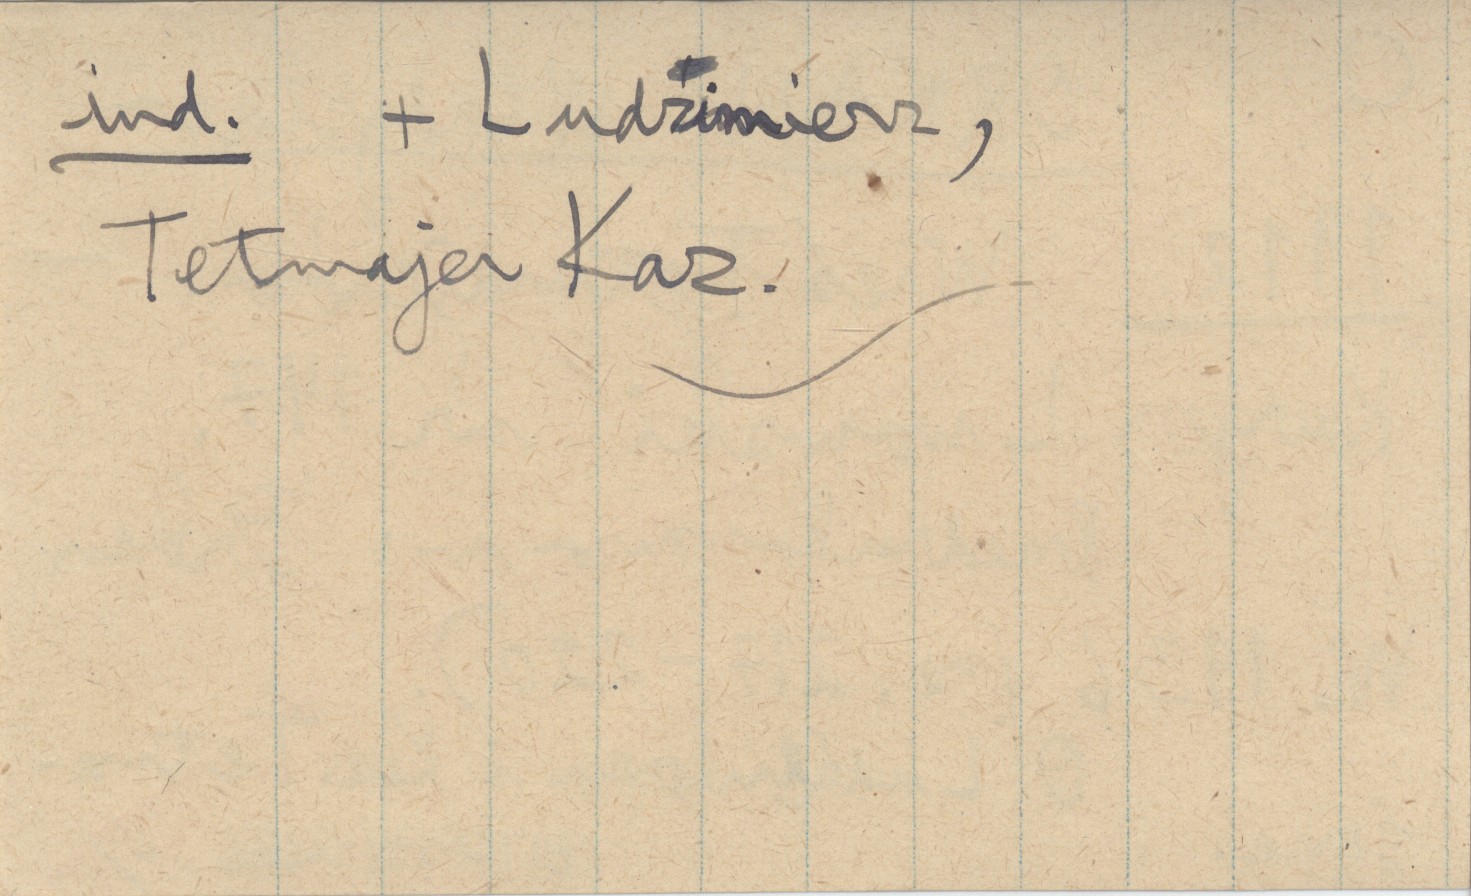 ind. + Ludzimierz,
Tetmajer Kaz.